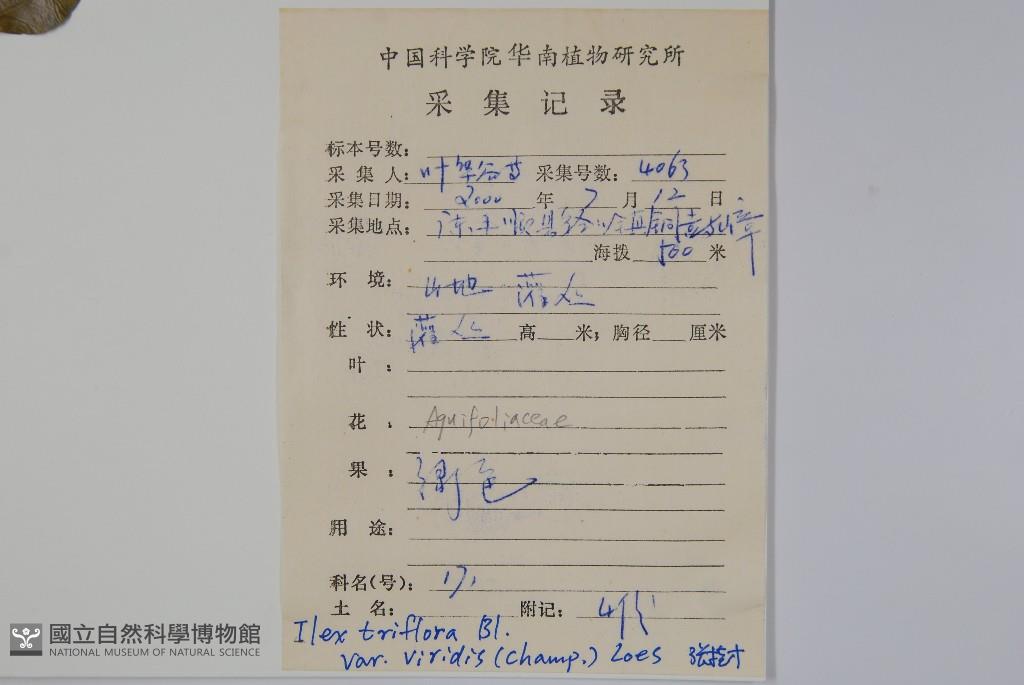 中国科学院华南植物研究所
采集记录
标本号数:
采集人: 叶华谷等 采集号数: 4063
采集日期: 2000 年 7 月 12 日
采集地点: 广东
海拨 500 米
环境: 山地 灌丛
性状: 灌丛 高 米; 胸径 厘米
叶:
花: Aquifoliaceae
果: 绿色
用途:
科名(号): 171
土名: 附记: 4份
Ilex triflora Bl.
var. viridis (Champ.) Loes
國立自然科學博物館
NATIONAL MUSEUM OF NATURAL SCIENCE